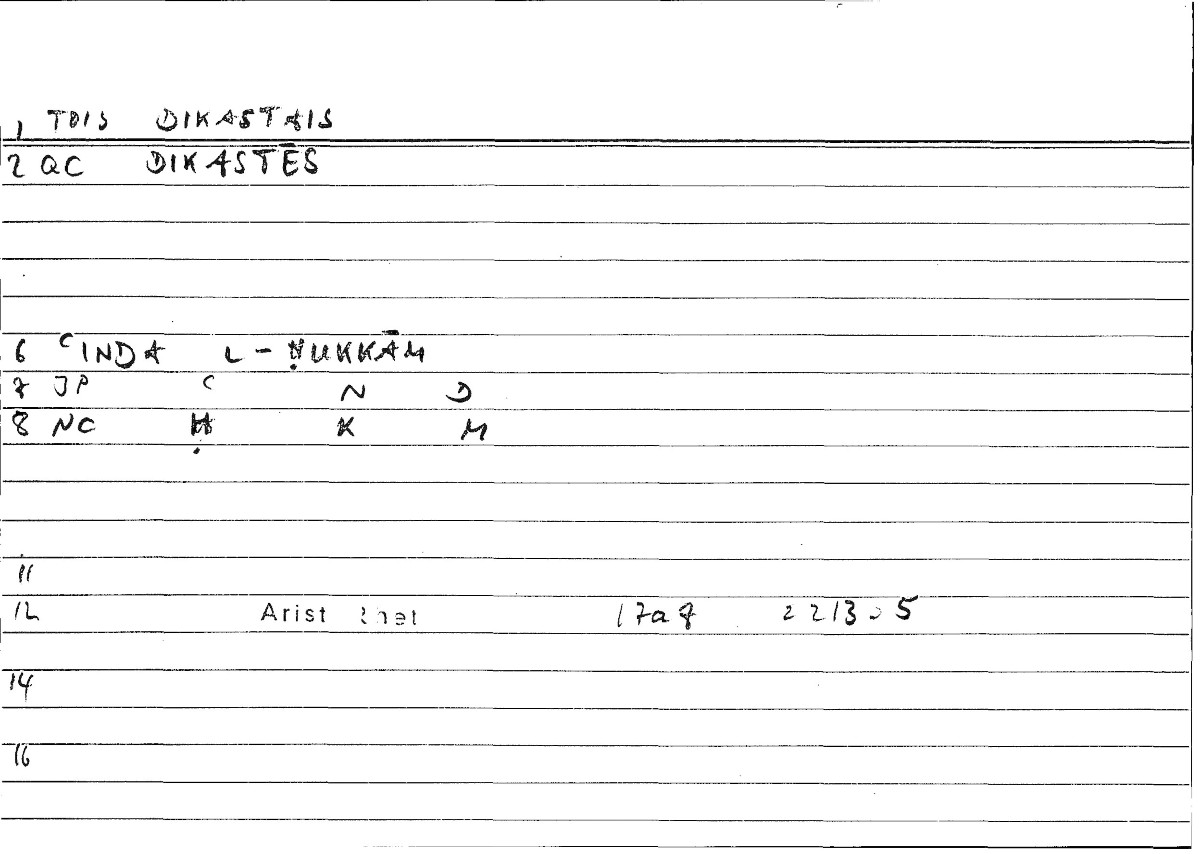 1 TOIS DIKASTAIS
2 QC DIKASTĒS
6 ʿINDA L-ḤUKKĀM
7 JP ʿ N D
8 NC Ḥ K M
11
12 Arist Rhet 17a9 2213 5
14
16